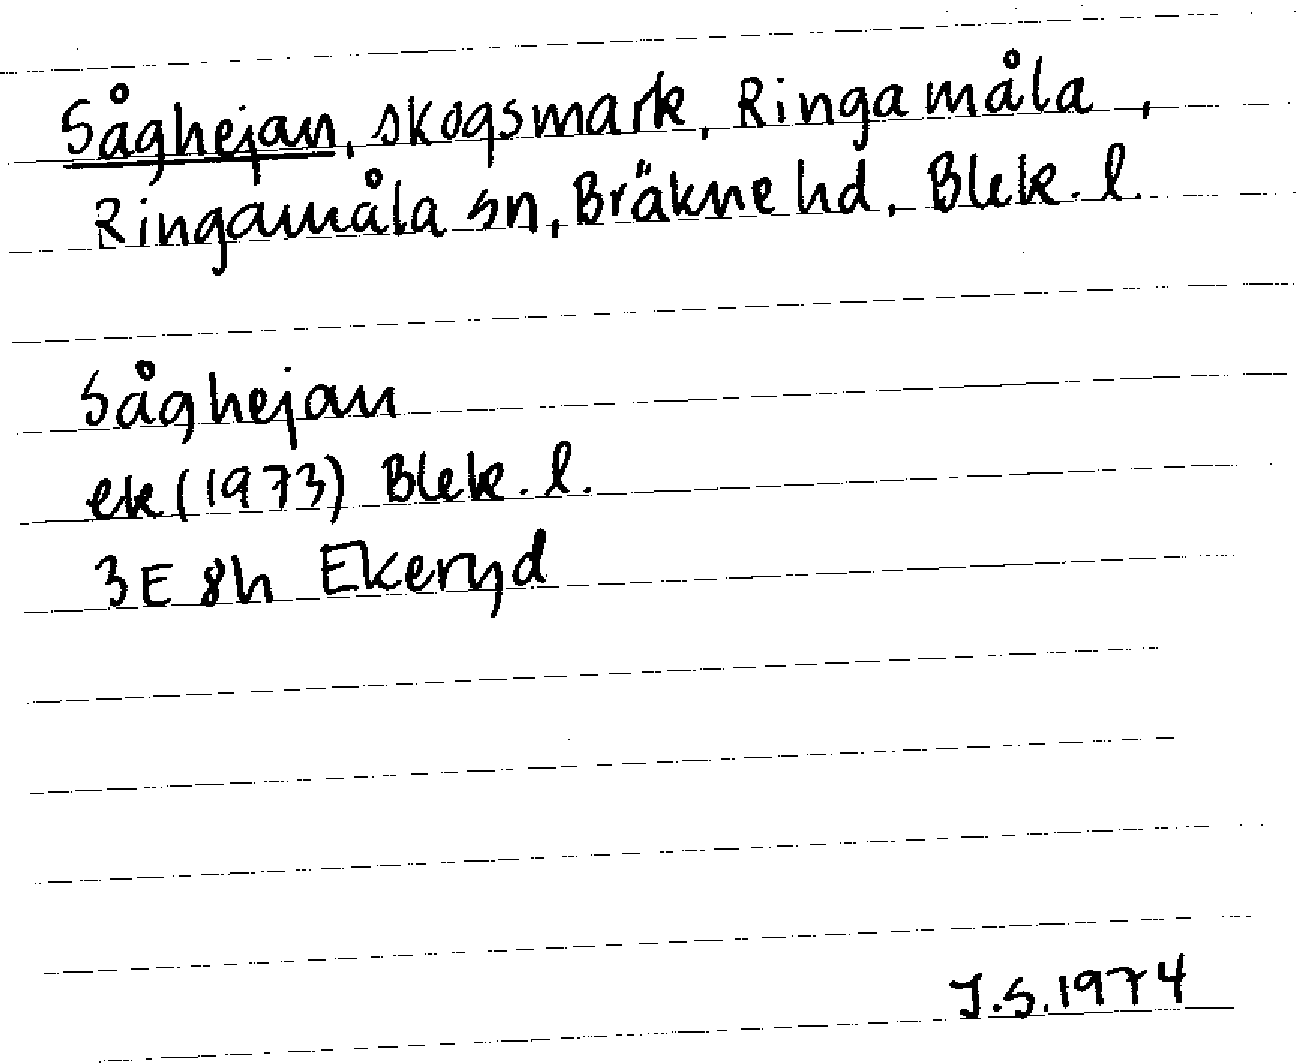 Såghejan, skogsmark, Ringamåla,
Ringamåla sn, Bräkne hd, Blek. l.
Såghejan
ek (1973) Blek. l.
3E 8h Ekeryd
J.S. 1974